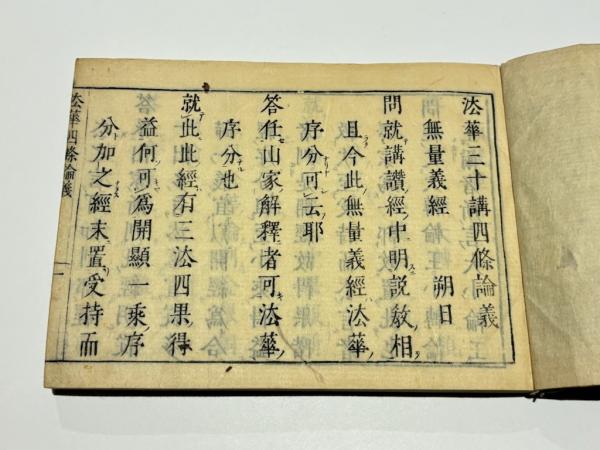 法華三十講四條論義
無量義經　朔日
問就講讃經中明説教相
且今此無量義經法華
序分可云耶
答任山家解釋者可法華
序分也
就此此經有三法四果得
益何可爲開顯一乘序
分加之經末置受持而
法華四條論義
一